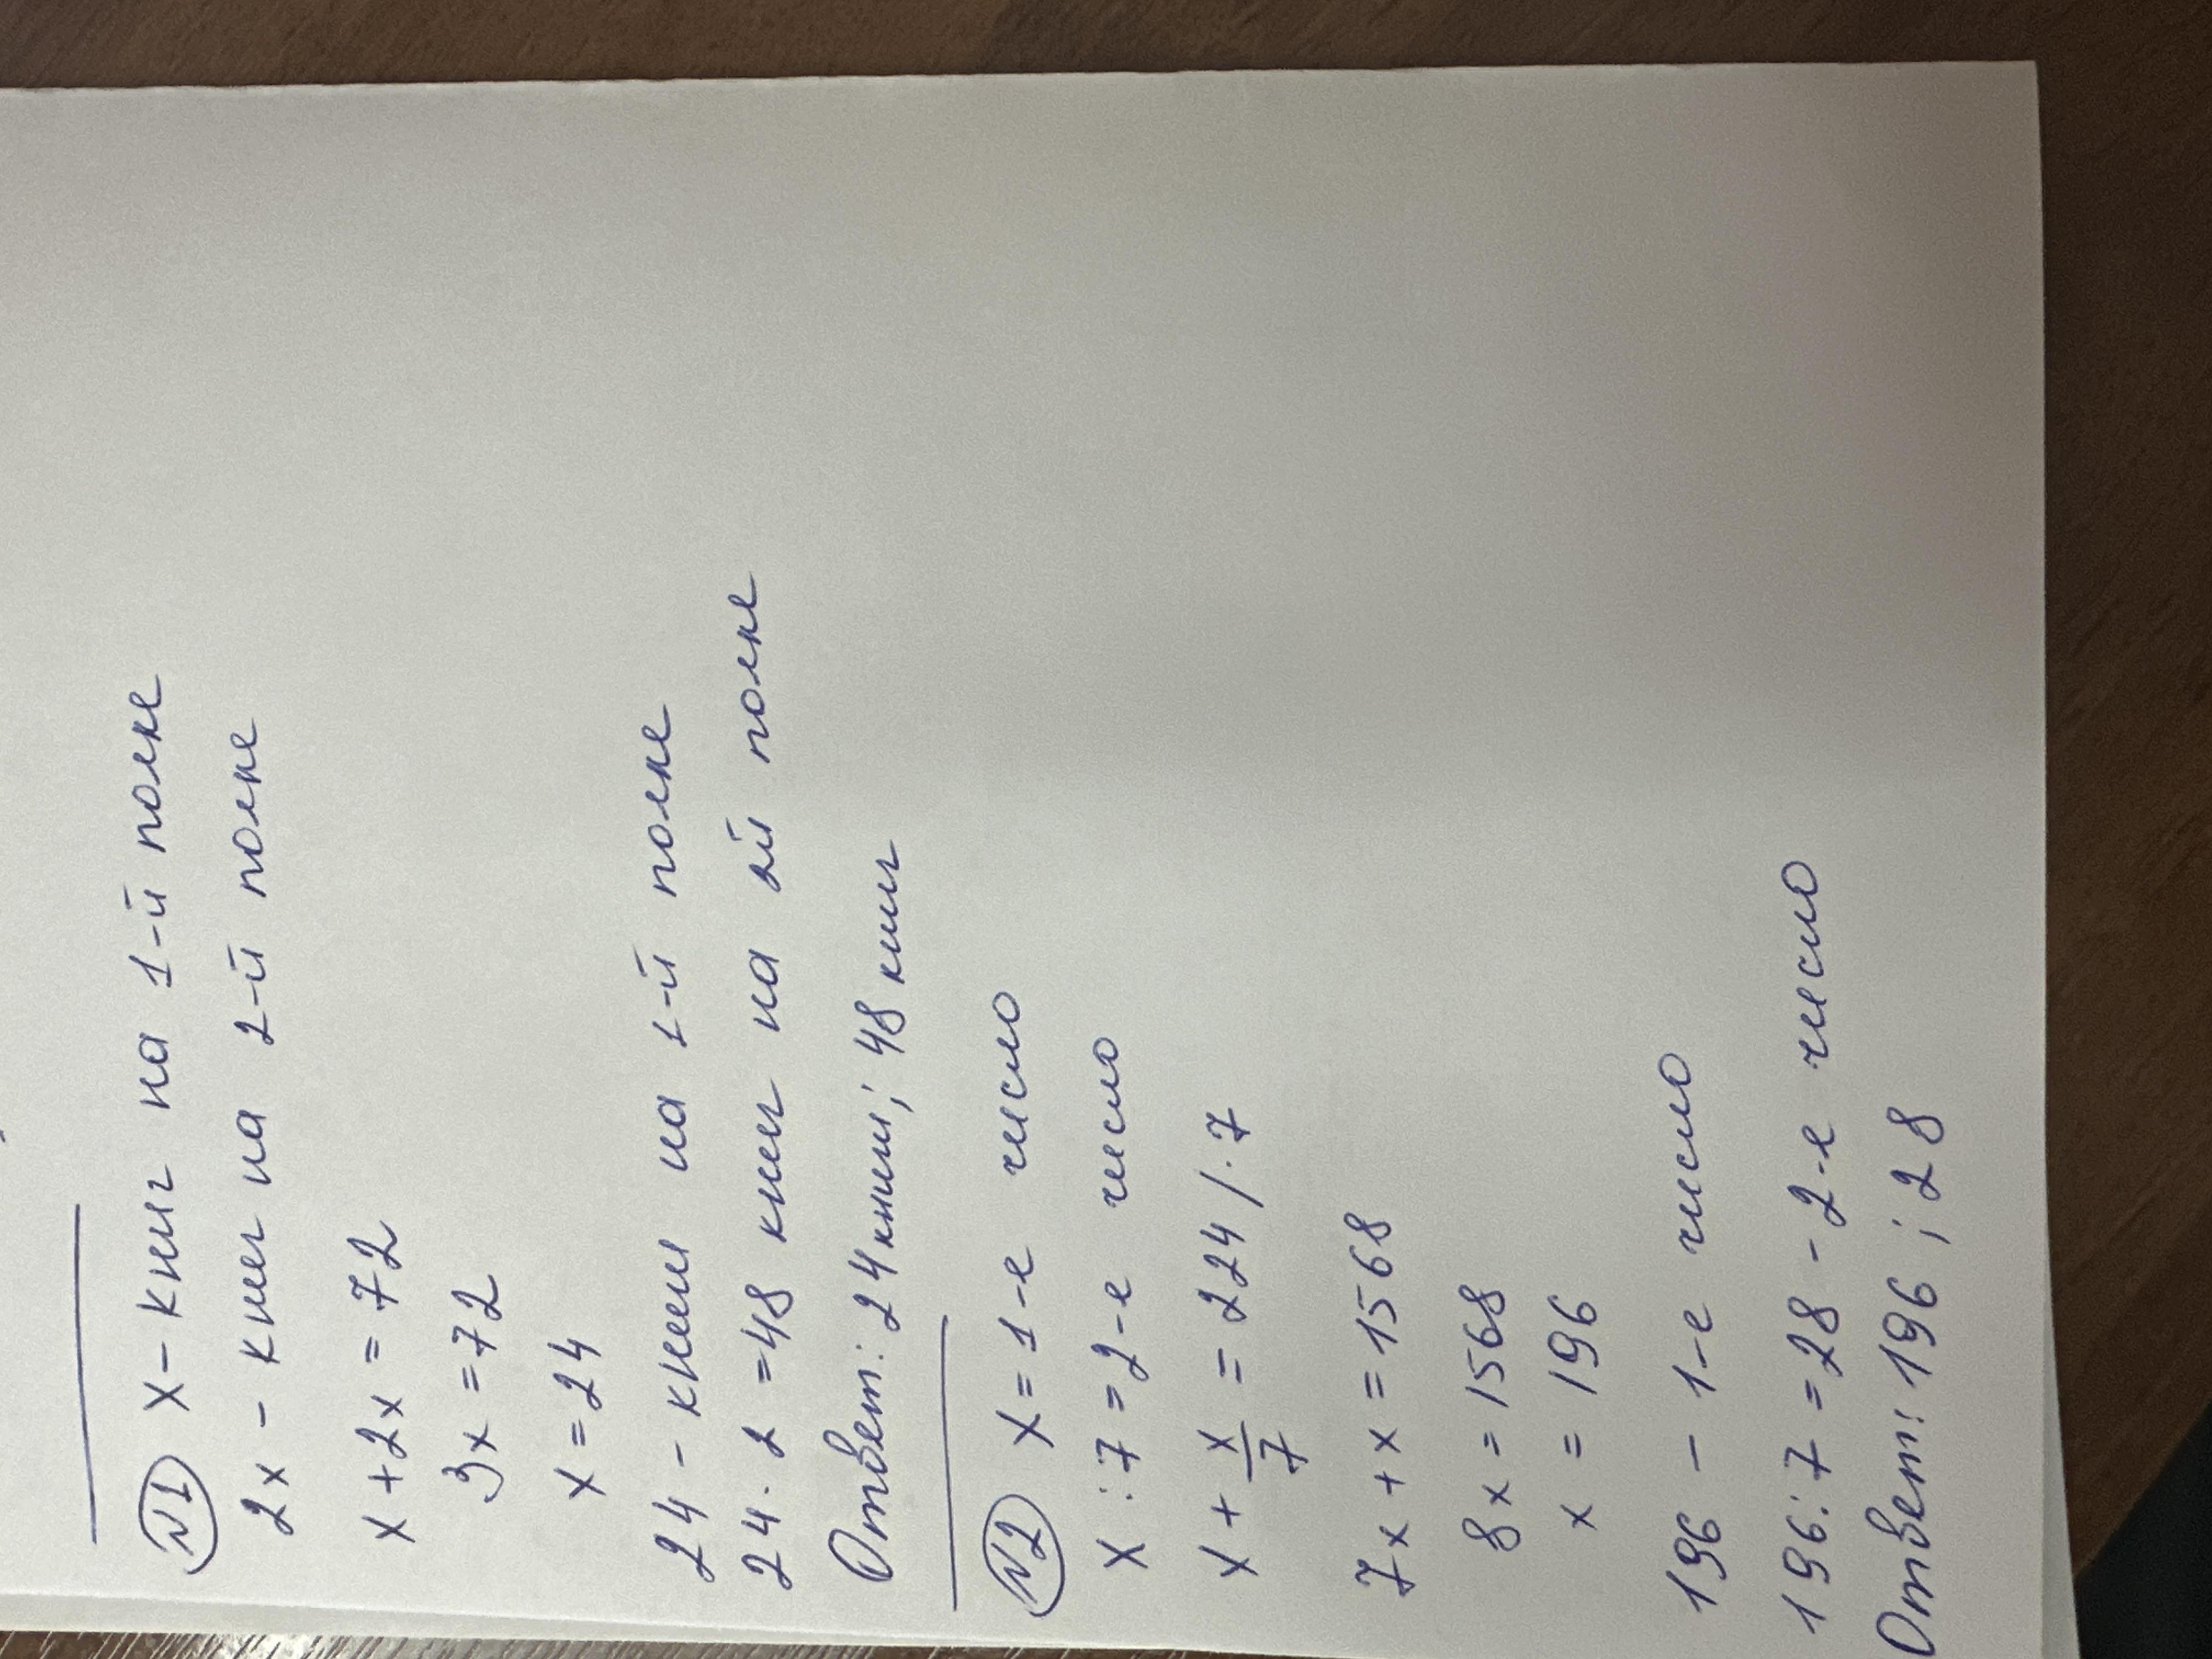 №1 х - книг на 1-й полке
2х - книг на 2-й полке
х + 2х = 72
3х = 72
х = 24
24 - книги на 1-й полке
24 · 2 = 48 книг на 2й полке
Ответ: 24 книги; 48 книг
№2 х = 1-е число
х : 7 = 2-е число
х + х/7 = 224 / · 7
7х + х = 1568
8х = 1568
х = 196
196 - 1-е число
196 : 7 = 28 - 2-е число
Ответ: 196 ; 28